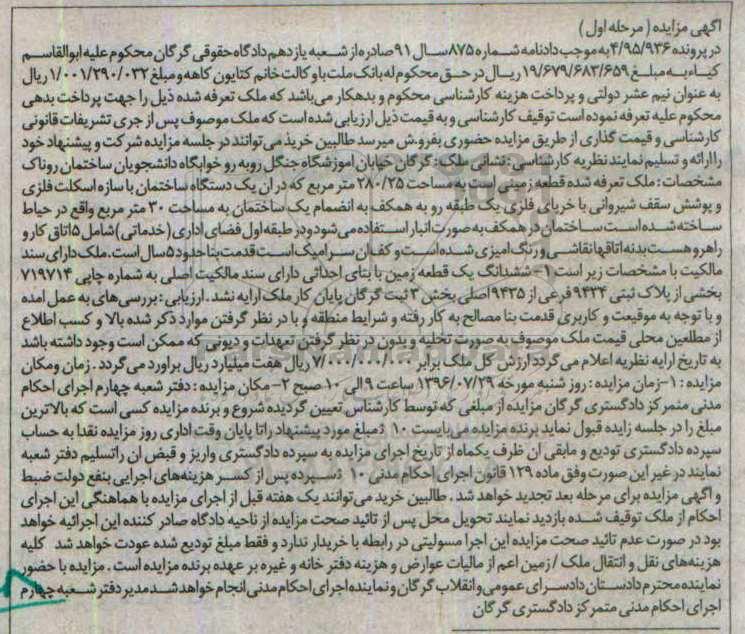 آگهی مزایده ( مرحله اول )
در پرونده ۴/۹۵/۹۳۶ به موجب دادنامه شماره ۸۷۵ سال ۹۱ صادره از شعبه یازدهم دادگاه حقوقی گرگان محکوم علیه ابوالقاسم
کیاء به مبلغ ۱۹/۶۷۹/۶۸۳/۶۵۹ ریال در حق محکوم له بانک ملت با وکالت خانم کتایون کاهه و مبلغ ۱/۰۰۱/۲۹۰/۰۳۲ ریال
به عنوان نیم عشر دولتی و پرداخت هزینه کارشناسی محکوم و بدهکار می‌باشد که ملک تعرفه شده ذیل را جهت پرداخت بدهی
محکوم علیه تعرفه نموده است توقیف کارشناسی و به قیمت ذیل ارزیابی شده است که ملک موصوف پس از جری تشریفات قانونی
کارشناسی و قیمت گذاری از طریق مزایده حضوری بفروش میرسد طالبین خرید می توانند در جلسه مزایده شرکت و پیشنهاد خود
را ارائه و تسلیم نمایند نظریه کارشناسی : نشانی ملک: گرگان خیابان اموزشگاه جنگل روبه رو خوابگاه دانشجویان ساختمان روناک
مشخصات : ملک تعرفه شده قطعه زمینی است به مساحت ۲۸۰/۲۵ متر مربع که در ان یک دستگاه ساختمان با سازه اسکلت فلزی
و پوشش سقف شیروانی با خرپای فلزی یک طبقه رو به همکف به انضمام یک ساختمان به مساحت ۳۰ متر مربع واقع در حیاط
ساخته شده است ساختمان در همکف به صورت انبار استفاده می شود و در طبقه اول فضای اداری (خدماتی) شامل ۵ اتاق کار و
راهرو هست بدنه اتاقها نقاشی و رنگ امیزی شده است و کف ان سرامیک است قدمت بنا حدود ۵ سال است. ملک دارای سند
مالکیت با مشخصات زیر است ۱- ششدانگ یک قطعه زمین با بنای احداثی دارای سند مالکیت اصلی به شماره چاپی ۷۱۹۷۱۴
بخشی از پلاک ثبتی ۹۴۳۴ فرعی از ۹۴۳۵ اصلی بخش ۳ ثبت گرگان پایان کار ملک ارایه نشد . ارزیابی : بررسی های به عمل امده
و با توجه به موقعیت و کاربری قدمت بنا مصالح به کار رفته و شرایط منطقه و با در نظر گرفتن موارد ذکر شده بالا و کسب اطلاع
از مطلعین محلی قیمت ملک موصوف به صورت تخلیه و بدون در نظر گرفتن تعهدات و دیونی که ممکن است وجود داشته باشد
به تاریخ ارایه نظریه اعلام می گردد ارزش کل ملک برابر ۷/۰۰۰/۰۰۰/۰۰۰ ریال هفت میلیارد ریال براورد می گردد . زمان و مکان
مزایده : ۱- زمان مزایده : روز شنبه مورخه ۱۳۹۶/۰۷/۲۹ ساعت ۹ الی ۱۰ صبح ۲- مکان مزایده : دفتر شعبه چهارم اجرای احکام
مدنی متمرکز دادگستری گرگان مزایده از مبلغی که توسط کارشناس تعیین گردیده شروع و برنده مزایده کسی است که بالاترین
مبلغ را در جلسه زایده قبول نماید برنده مزایده می بایست ۱۰ ٪ مبلغ مورد پیشنهاد را تا پایان وقت اداری روز مزایده نقدا به حساب
سپرده دادگستری تودیع و مابقی ان ظرف یکماه از تاریخ اجرای مزایده به سپرده دادگستری واریز و قبض ان را تسلیم دفتر شعبه
نمایند در غیر این صورت وفق ماده ۱۲۹ قانون اجرای احکام مدنی ۱۰ ٪ سپرده پس از کسر هزینه‌های اجرایی بنفع دولت ضبط
و آگهی مزایده برای مرحله بعد تجدید خواهد شد . طالبین خرید می توانند یک هفته قبل از اجرای مزایده با هماهنگی این اجرای
احکام از ملک توقیف شده بازدید نمایند تحویل محل پس از تائید صحت مزایده از ناحیه دادگاه صادر کننده این اجرائیه خواهد
بود در صورت عدم تائید صحت مزایده این اجرا مسولیتی در رابطه با خریدار ندارد و فقط مبلغ تودیع شده عودت خواهد شد کلیه
هزینه‌های نقل و انتقال ملک / زمین اعم از مالیات عوارض و هزینه دفتر خانه و غیره بر عهده برنده مزایده است . مزایده با حضور
نماینده محترم دادستان دادسرای عمومی و انقلاب گرگان و نماینده اجرای احکام مدنی انجام خواهد شد مدیر دفتر شعبه چهارم
اجرای احکام مدنی متمرکز دادگستری گرگان